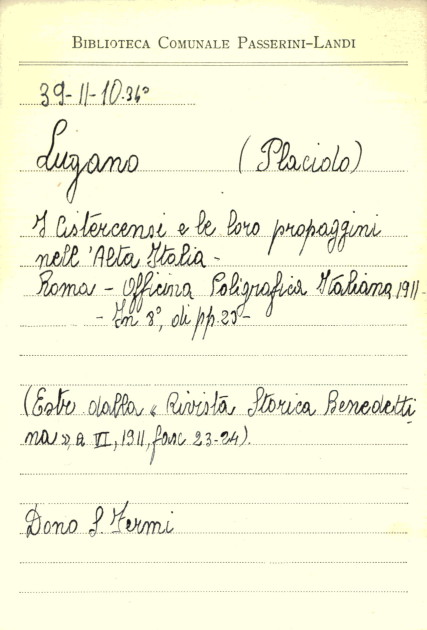 BIBLIOTECA COMUNALE PASSERINI-LANDI
39-11-10.36°
Lugano (Placido)
I Cistercensi e le loro propaggini
nell'Alta Italia -
Roma - Officina Poligrafica Italiana, 1911 -
- In 8°, di pp. 25 -
(Estr. dalla « Rivista Storica Benedetti
na » a VI, 1911, fasc 23-24).
Dono S. Fermi